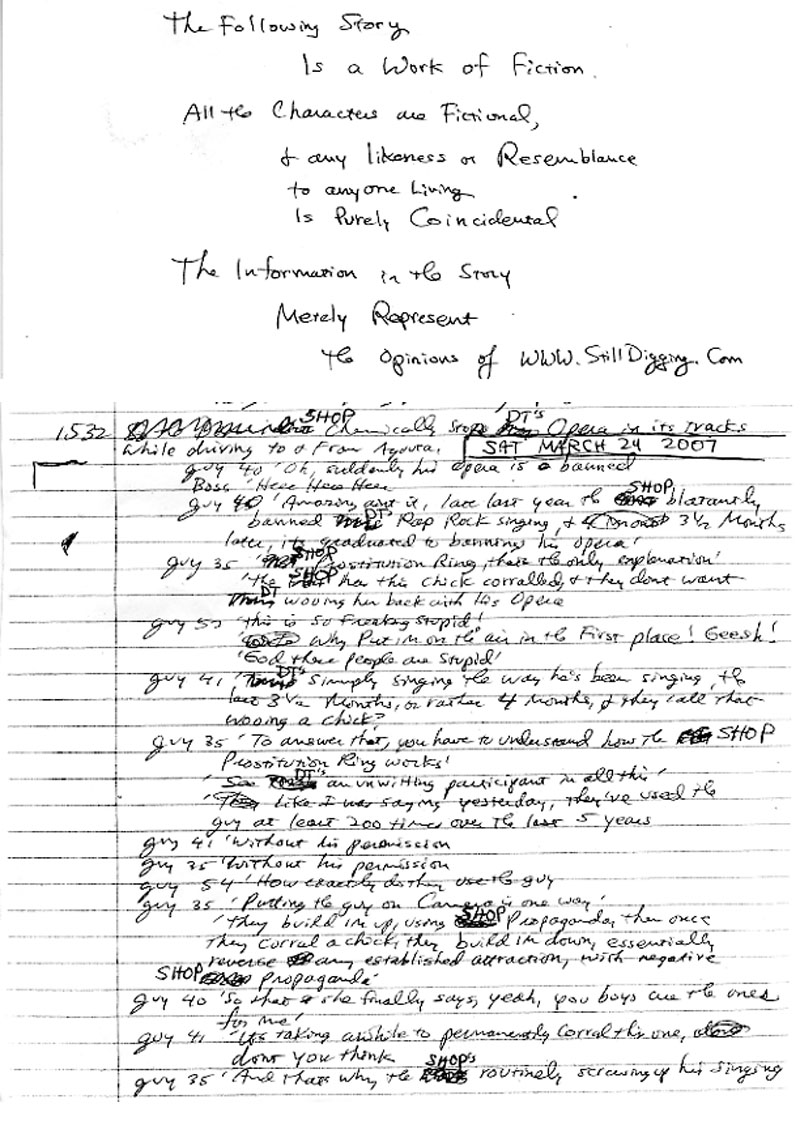 The Following Story
Is a Work of Fiction.
All the Characters are Fictional,
& any likeness or Resemblance
to anyone Living
Is Purely Coincidental
The Information in the Story
Merely Represent
the Opinions of WWW.StillDigging.Com
1532 SHOP Chemically Stops DT's Opera in its tracks
while driving to & From Agoura. SAT MARCH 24 2007
guy 40 'Oh, suddenly his opera is a banned
Boss 'Hee Hee Hee
guy 40 'Amazing aint it, late last year the SHOP blatantly
banned DT's Rap Rock singing, & 3½ Months
later, its graduated to banning his opera'
guy 35 SHOP Prostitution Ring, thats the only explanation'
'the SHOP has this chick corralled, & they dont want
DT wooing her back with his Opera
guy 53 'this is so freaking stupid!
why Put im on the air in the First place! Geesh!
'God these people are stupid'
guy 41 DT's Simply singing the way he's been singing, the
last 3½ Months, or rather 4 months, & they call that
wooing a chick?
guy 35 'To answer that, you have to understand how the SHOP
Prostitution Ring works!
DT's an unwitting participant in all this'
Like I was saying yesterday, they've used the
guy at least 200 times over the last 5 years
guy 41 'Without his permission
guy 35 'Without his permission
guy 54 'How exactly do they use the guy
guy 35 'Putting the guy on Camera is one way'
'They build im up, using SHOP Propaganda, then once
They corral a chick, they build im down, essentially
reverse any established attraction, with negative
SHOP propaganda'
guy 40 'So that she finally says, yeah, you boys are the ones
for me'
guy 41 'Its taking awhile to permanently corral this one,
dont you think
guy 35 'And thats why the SHOP's routinely screwing up his singing